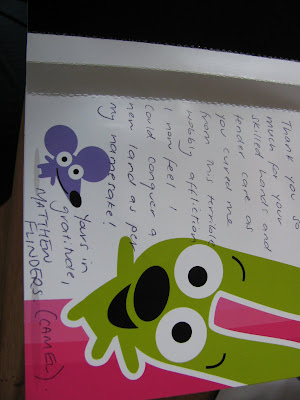 Thank you so
much for your
skilled hands and
tender care as
you cured me
from this terrible
wobbly affliction
I now feel I
could conquer a
new land as per
my namesake!
Yours in
gratitude,
MATTHEW
FLINDERS (CAMEL).